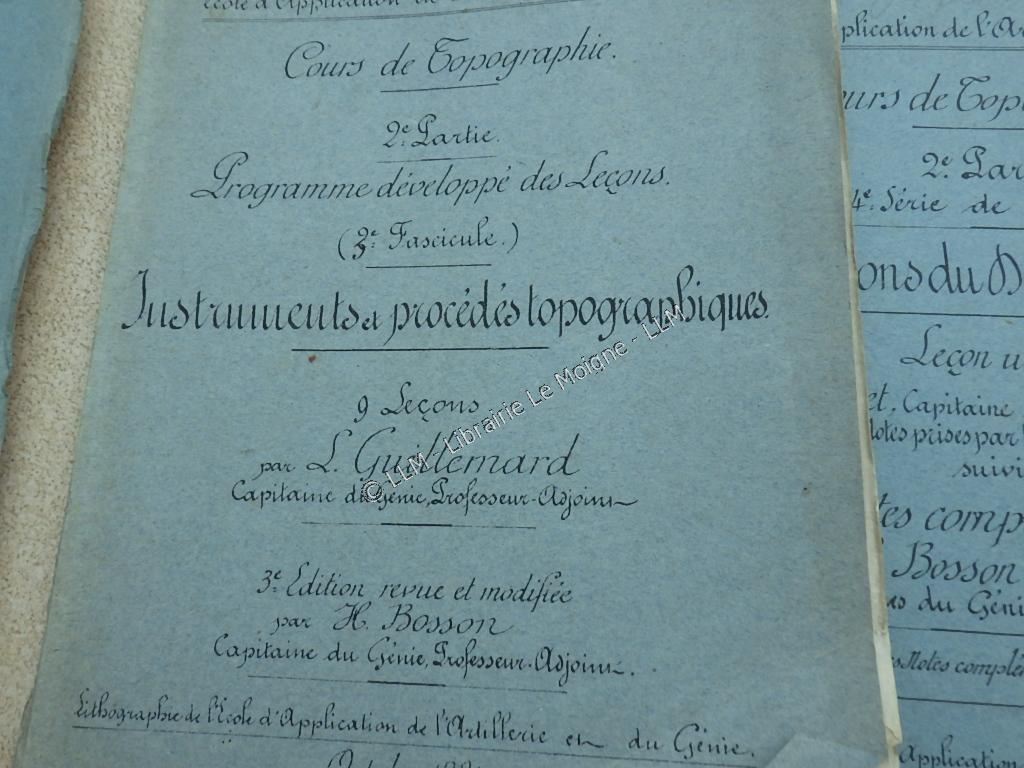 école d'Application de
Cours de Topographie.
2e. Partie.
Programme développé des Leçons.
(2e. Fascicule.)
Instruments et procédés topographiques.
9 Leçons
par L. Guillemard
Capitaine du Génie, Professeur-Adjoint
3e. Edition revue et modifiée
par H. Bosson
Capitaine du Génie, Professeur-Adjoint.
Lithographie de l'Ecole d'Application de l'Artillerie et du Génie.
© LLM - Librairie Le Moigne - LLM
plication de l'Ar
urs de Top
2e. Par
4e. Série de
ons du
Leçon u
et, Capitaine
Notes prises par
suivi
tes comp
Bosson
du Génie
Notes complé
Application